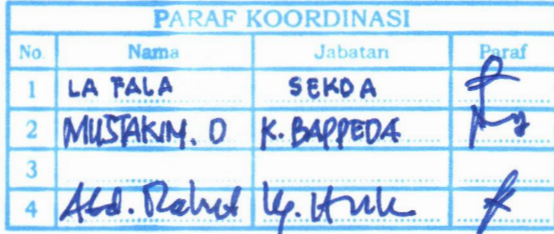 PARAF KOORDINASI
No. Nama Jabatan Paraf
1 LA FALA SEKDA
2 MUSTAKIM. D K. BAPPEDA
3
4 Abd. Rahmat